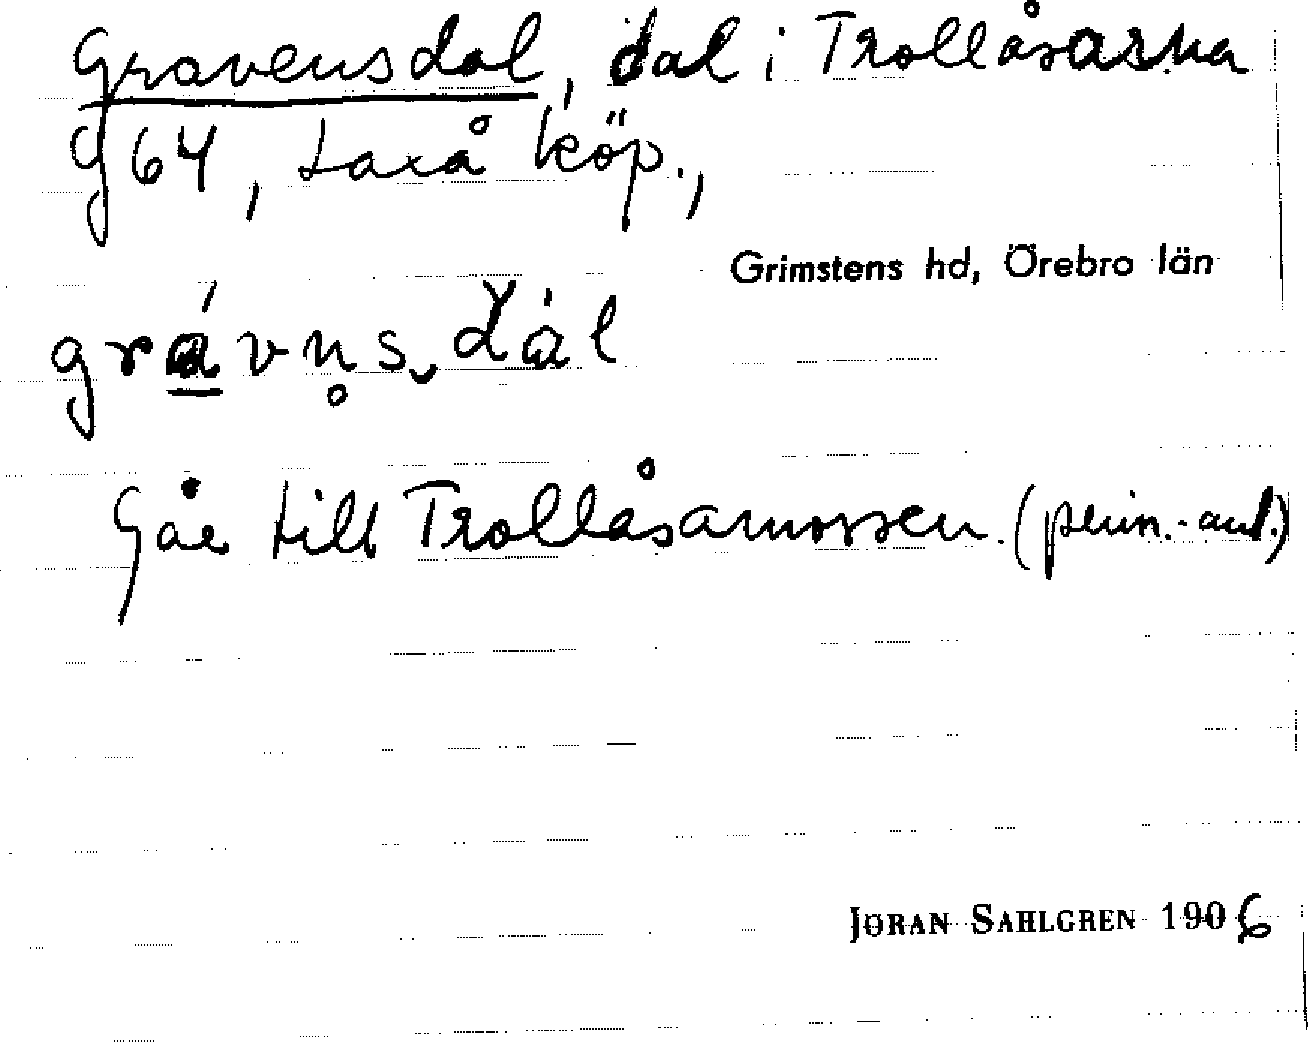 Gravensdal, dal i Trollåsarna
G 64, Laxå köp.,
Grimstens hd, Örebro län
grávn̥s‿dàl
Går till Trollåsamossen. (prim.-ant.)
JÖRAN SAHLGREN 1906